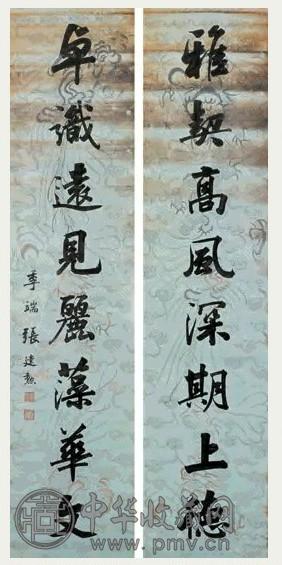 雅契高風深期上德
卓識遠見麗藻華文
季端張建勲
中华收藏网
www.pmv.cn